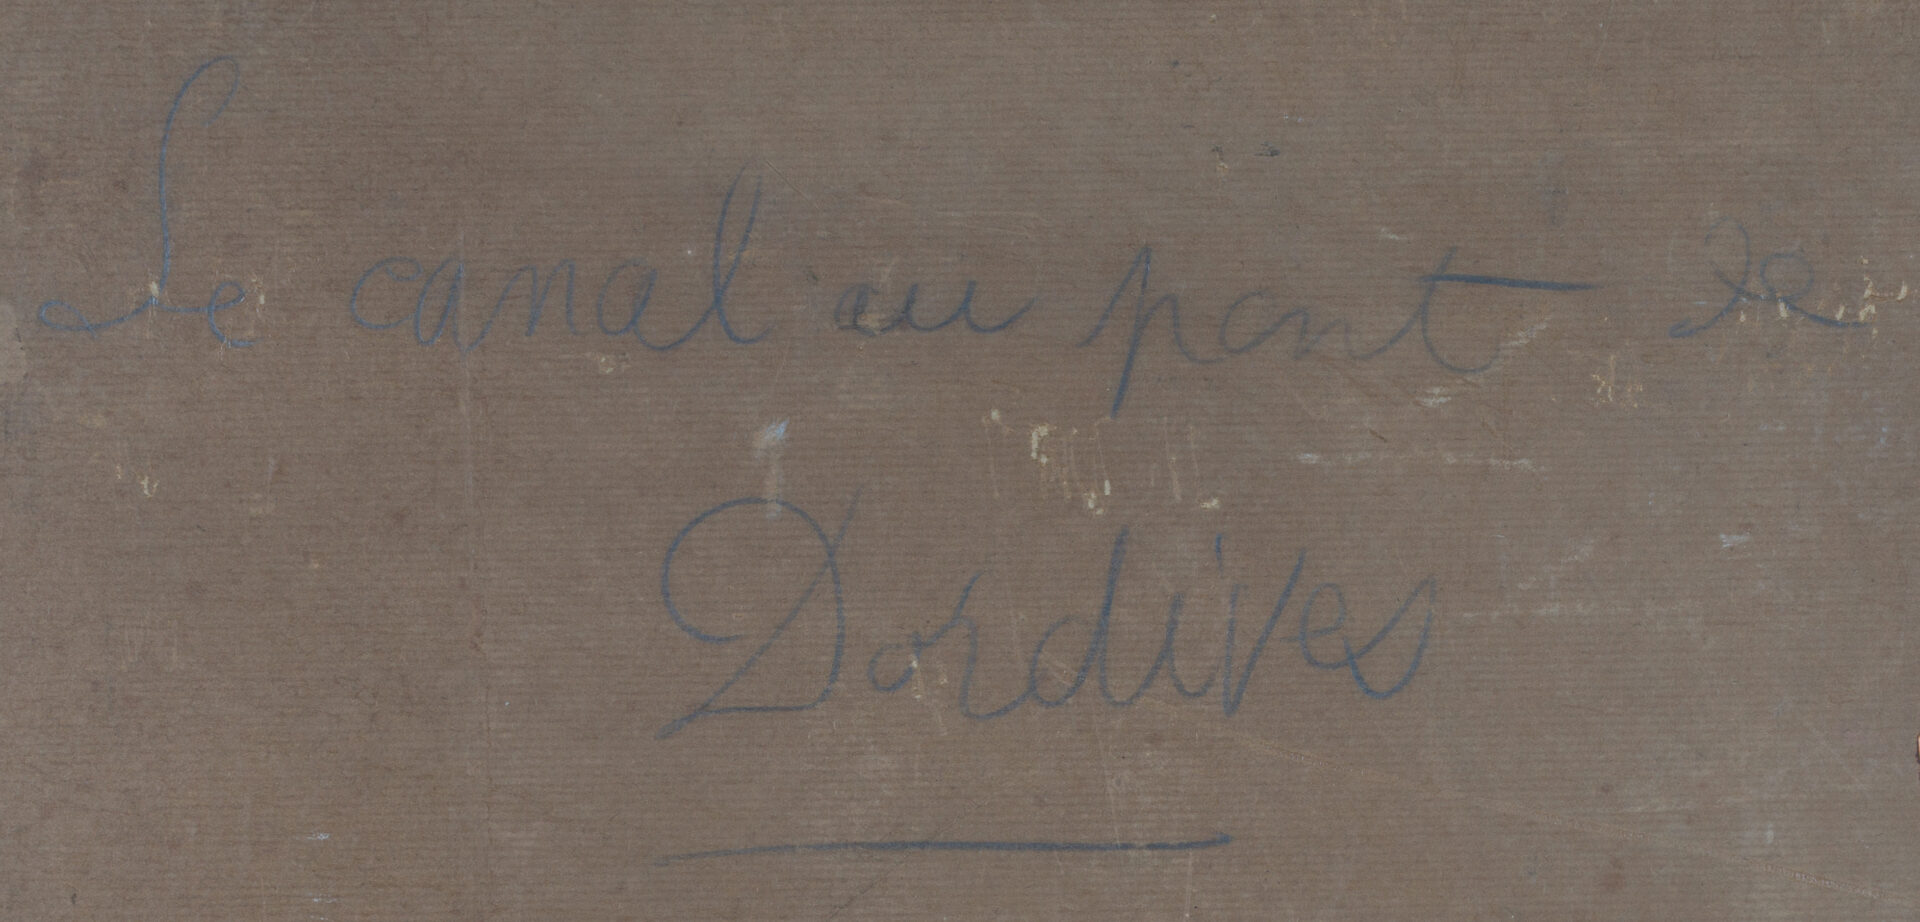 Le canal au pont de
Dordives